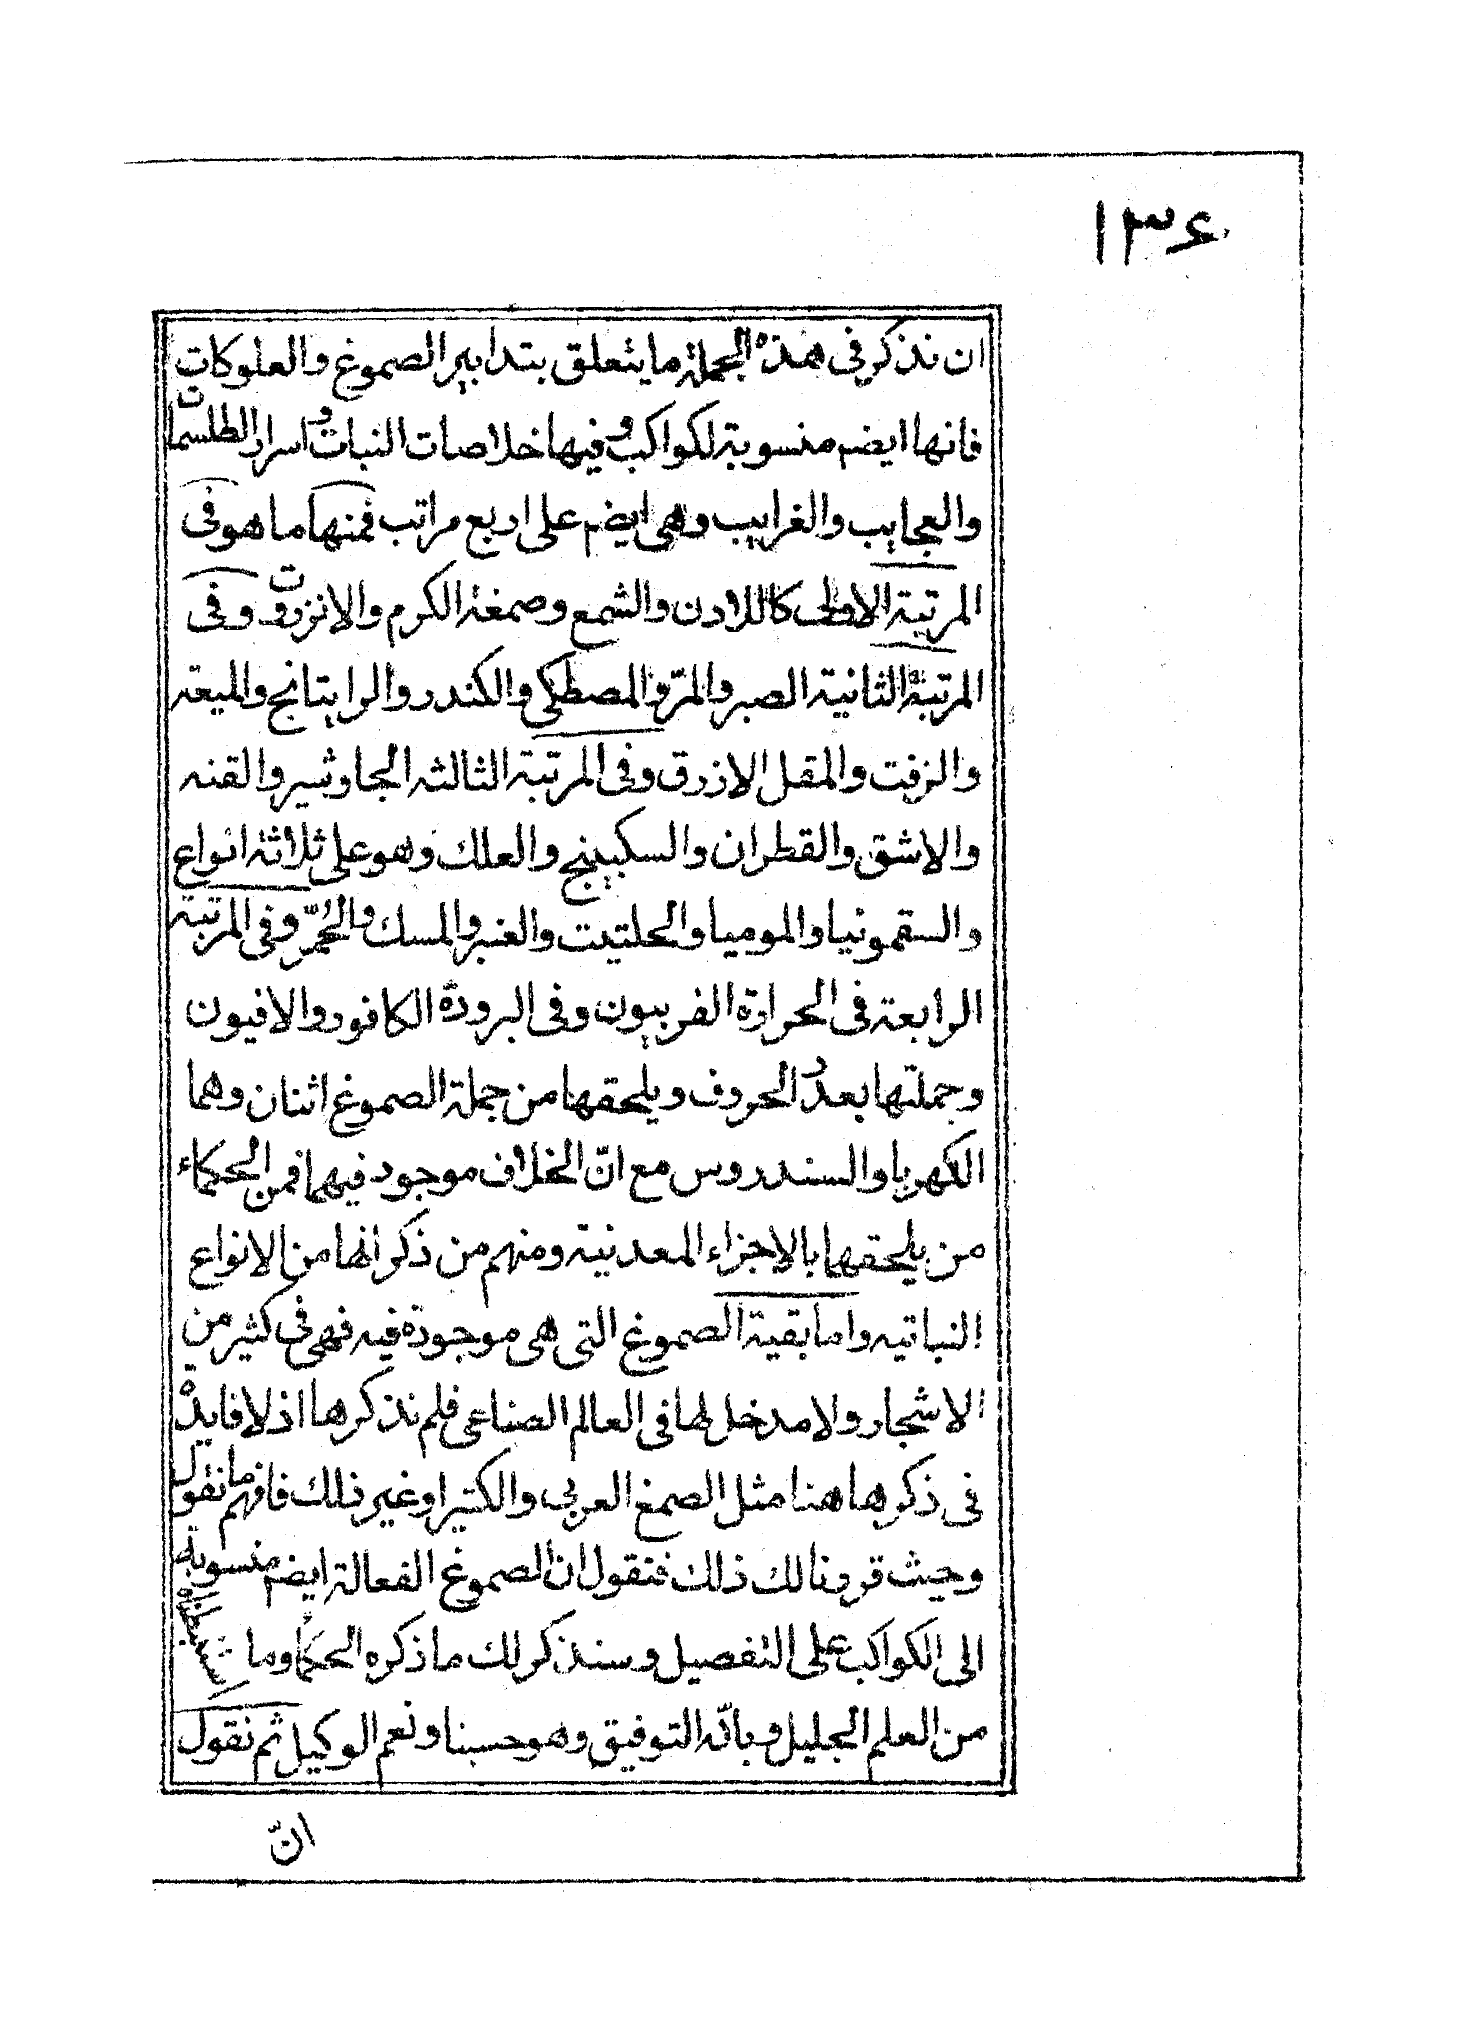 ١٣٤
ان نذكر فى هذه الجملة ما يتعلق بتدابير الصموغ والعلوكات
فانها ايضم منسوبة لكواكب وفيها خلاصات النبات واسرار الطلسمات
والعجايب والغرايب وهى ايضم على اربع مراتب فمنها ما هو فى
المرتبة الاولى كاللادن والشمع وصمغة الكرم والانزروت وفى
المرتبة الثانية الصبر والمرّ والمصطكى والكندر والراتينانج والميعة
والزفت والمقل الازرق وفى المرتبة الثالثه الجاوشير والقنه
والاشق والقطران والسكبينج والعلك وهو على ثلاثة انواع
والسقمونيا والموميا والحلتيت والعنبر والمسك والخُمّر وفى المرتبة
الرابعة فى الحرارة الفربيون وفى البرودة الكافور والافيون
وجملتها بعدد الحروف ويلحقها من جملة الصموغ اثنان وهما
الكهربا والسندروس مع انّ الخلاف موجود فيهما فمن الحكماء
من يلحقها بالاجزاء المعدنية ومنهم من ذكر انها من الانواع
النباتيه واما بقية الصموغ التى هى موجودة فيه فهى فى كثير من
الاشجار ولا مدخل لها فى العالم الصناعى فلم نذكرها اذ لا فايدة
فى ذكرها هنا مثل الصمغ العربى والكتيرا وغير ذلك فافهم ما نقول
وحيث قررنا لك ذلك فنقول ان الصموغ الفعالة ايضم منسوبة
الى الكواكب على التفصيل وسنذكر لك ما ذكره الحكما وما استنبطناه
من العلم الجليل وبالله التوفيق وهو حسبنا ونعم الوكيل ثم نقول
انّ